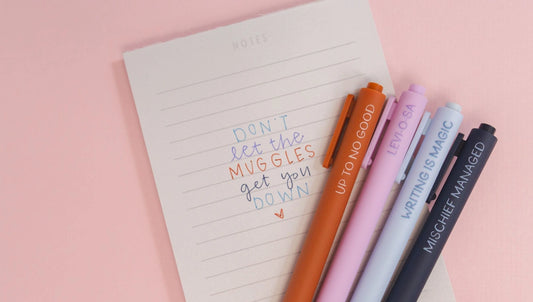 NOTES
DON'T
let the
MUGGLES
get you
DOWN
UP TO NO GOOD
LEVI-O-SA
WRITING IS MAGIC
MISCHIEF MANAGED